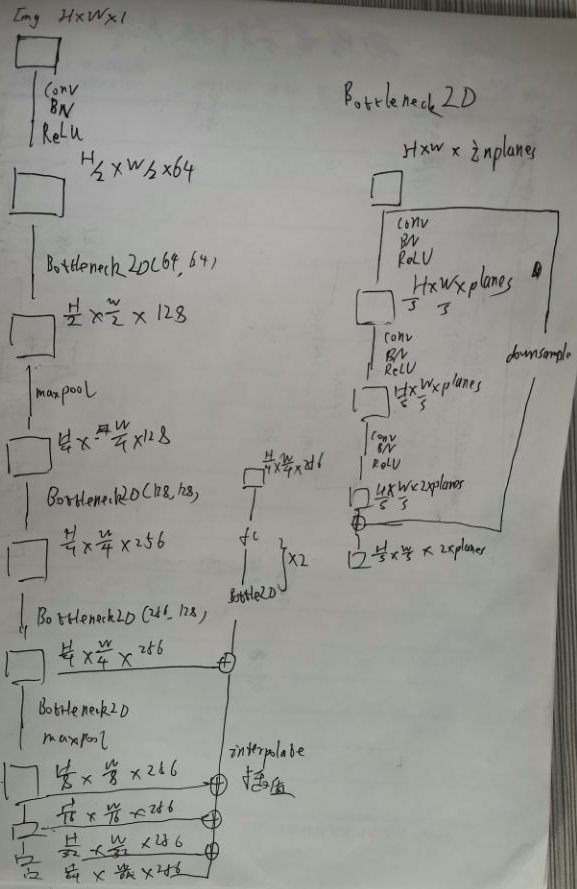 Img H×W×1
Conv
BN
ReLU
H/2 × W/2 × 64
Bottleneck2D(64, 64)
H/2 × W/2 × 128
maxpool
H/4 × W/4 × 128
Bottleneck2D(128, 128,
H/4 × W/4 × 256
Bottleneck2D(256, 128,
H/4 × W/4 × 256
Bottleneck2D
maxpool
H/8 × W/8 × 256
H/16 × W/16 × 256
H/32 × W/32 × 256
H/64 × W/64 × 256
H/4 × W/4 × 256
fc
×2
Bottle2D
interpolate
插值
Bottleneck2D
H×W × inplanes
Conv
BN
ReLU
H/s × W/s × planes
Conv
BN
ReLU
H/s × W/s × planes
Conv
BN
ReLU
H/s × W/s × 2×planes
H/s × W/s × 2×planes
downsample